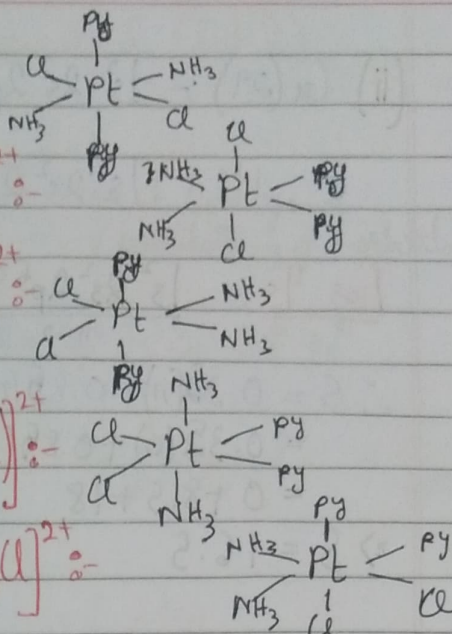 Py
Cl NH3
Pt
NH3 Cl
Py
2+ :-
Cl
NH3 Pt Py
NH3 Py
Cl
2+ :-
Py
Cl NH3
Pt
Cl NH3
Py
NH3
)]2+ :-
Cl Pt py
Cl py
NH3
Cl]2+ :-
py
NH3 Pt py
NH3 Cl
Cl